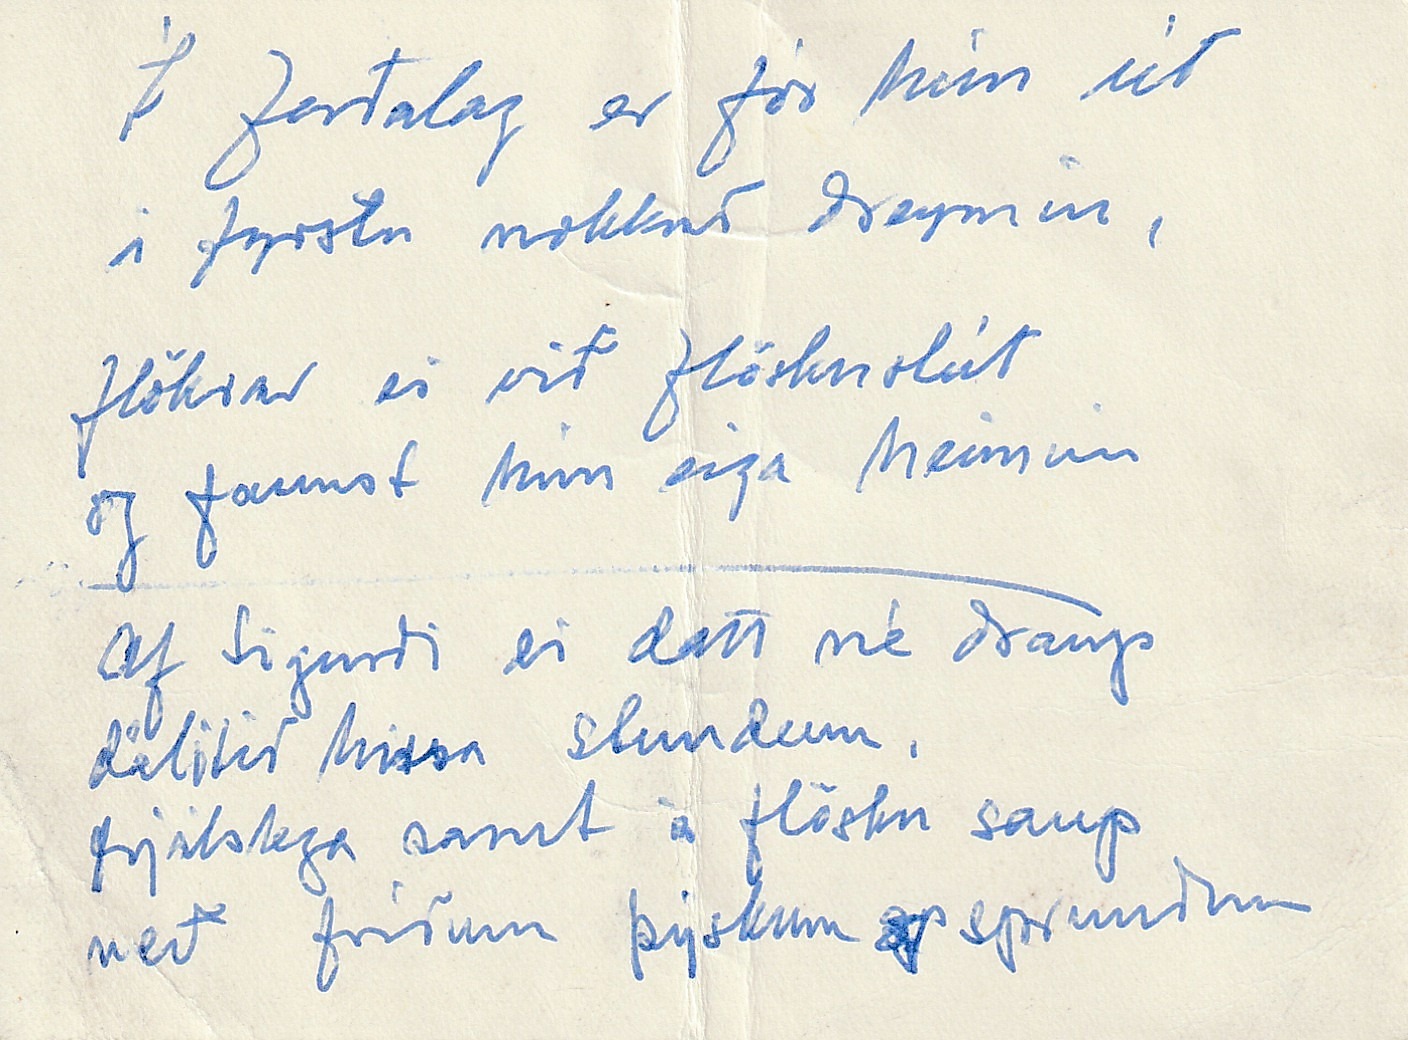 Í ferðalag er fór hún út
í fyrstu nokkuð dreymin,
flökrar ei við flöskustút
og fannst hún eiga heiminn
Af Sigurði ei datt né draup
dálítið hissa stundum,
frjálslega samt á flösku saup
með fríðum þýskum sprundum